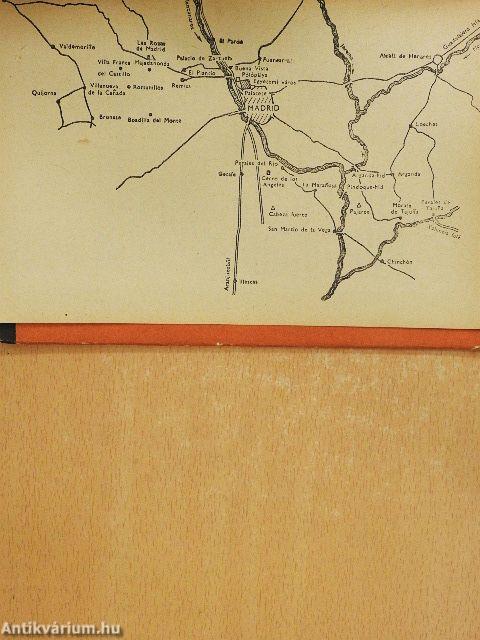 El Pardo
Valdemorillo
Las Rozas
de Madrid
Villa Franca
del Castillo
Majadahonda
Palacio de Zarzuela
Fuencarral
Alcalá de Henares
El Plantio
Buena Vista
Pótpálya
Egyetemi város
Palacete
MADRID
Villanueva
de la Cañada
Romanillos
Quijorna
Brunete
Boadilla del Monte
Loeches
Perales del Río
Getafe
Cerro de los
Angeles
La Marañosa
Arganda-híd
Pindoque-híd
Arganda
Cabeza fuerte
Pajares
Morata
de Tajuña
Perales de
Tajuña
San Martin de la Vega
Chinchón
Illescas
Antikvárium.hu